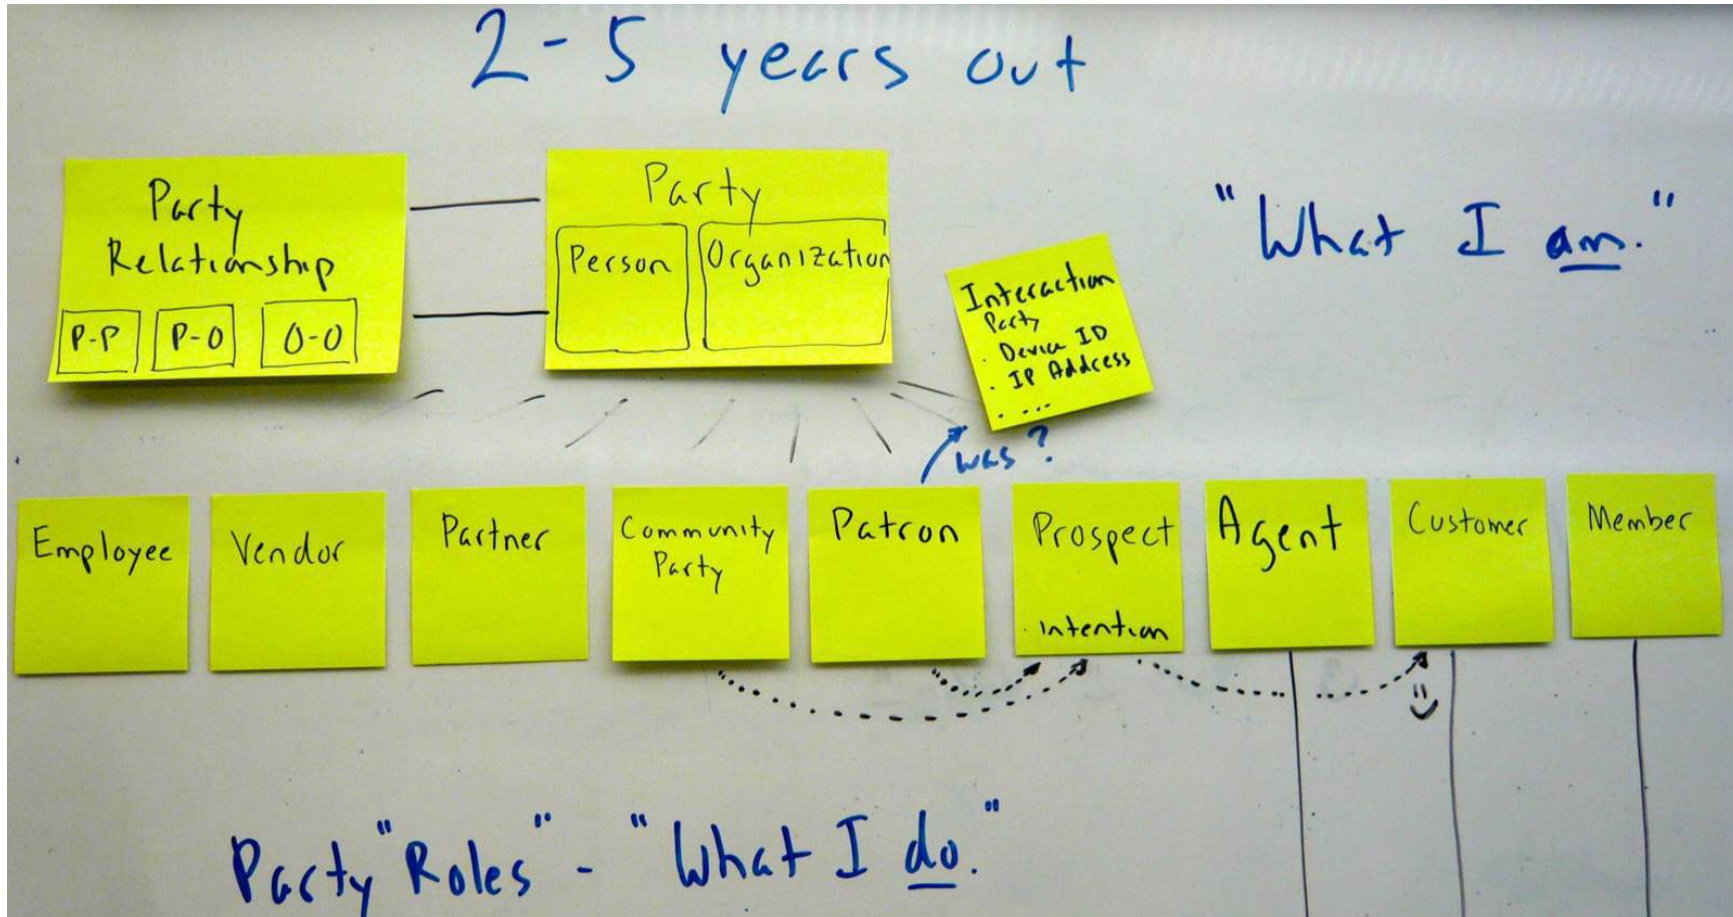 2-5 years out
Party
Relationship
P-P P-O O-O
Party
Person Organization
Interaction
Party
. Device ID
. IP Address
. ...
"What I am."
was?
Employee
Vendor
Partner
Community
Party
Patron
Prospect
. intention
Agent
Customer
Member
Party "Roles" - "What I do."